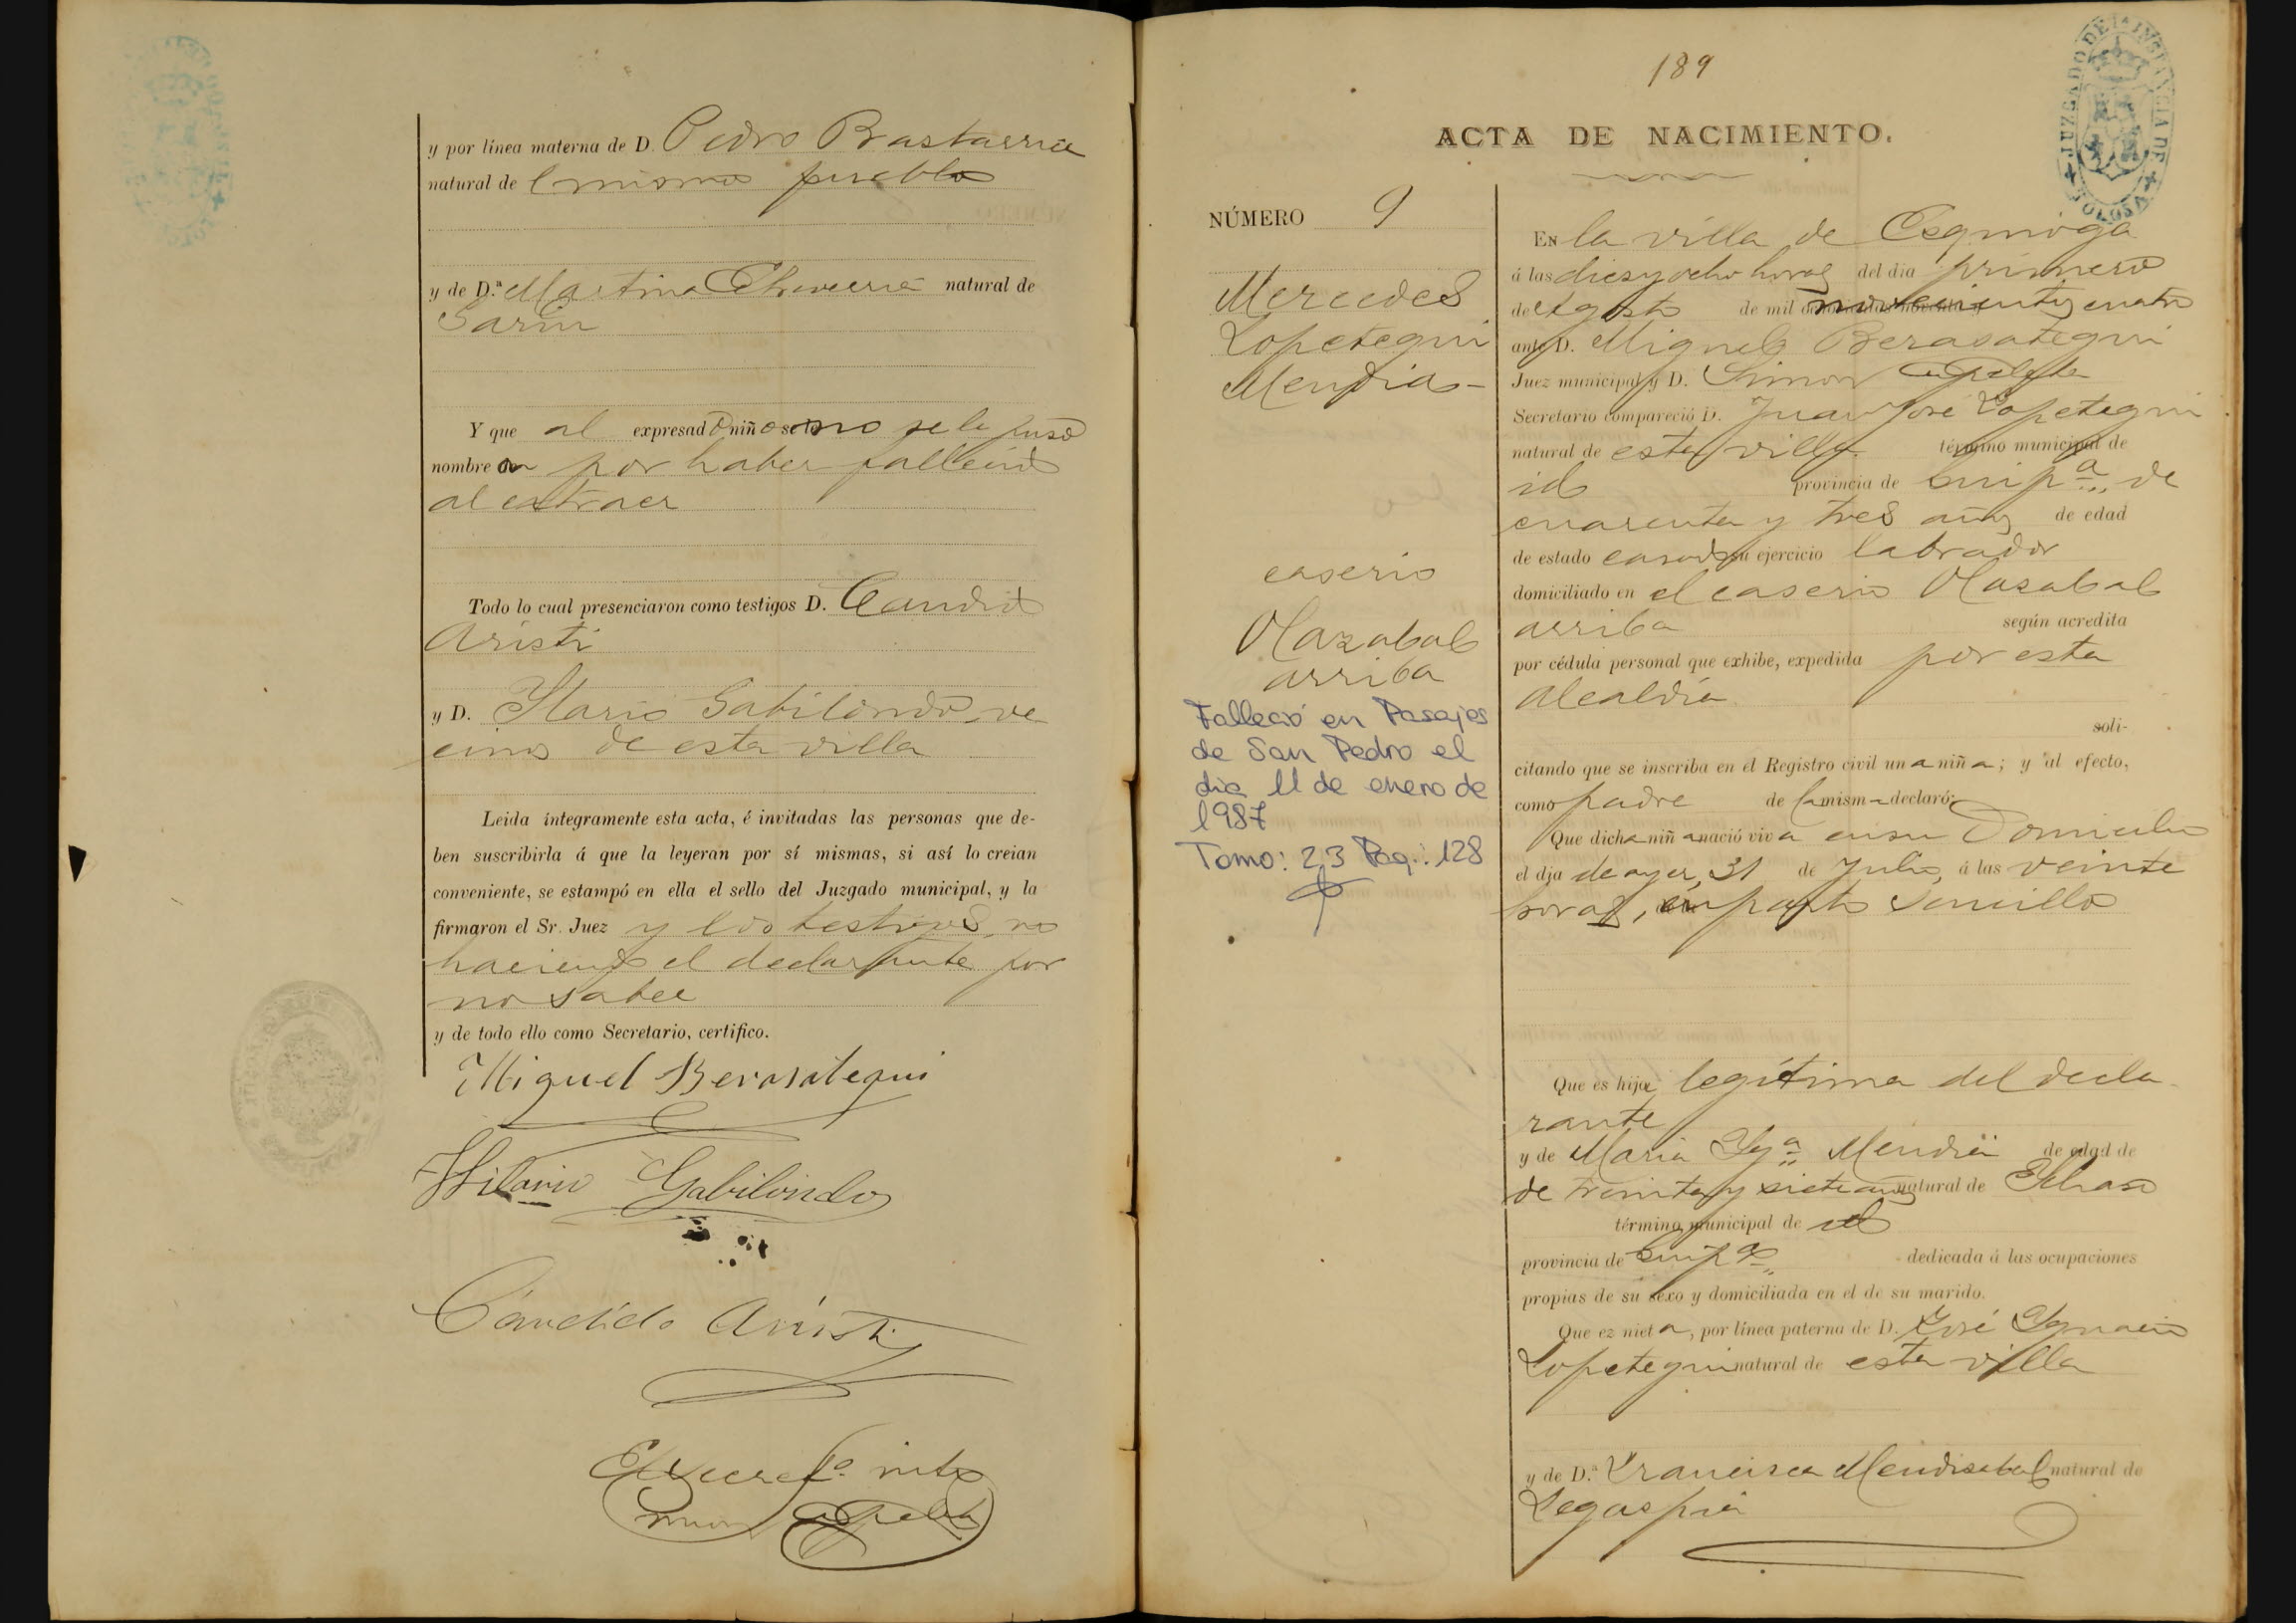 y por línea materna de D. Pedro Bastarrica
natural de l mismo pueblo
y de D.ª Martina Echeverria natural de
Sarin
Y que al expresado niño no se le puso
nombre por haber fallecido
al extraer
Todo lo cual presenciaron como testigos D. Candido
Aristi
y D. Ilario Gabilondo ve
cinos de esta villa
Leida íntegramente esta acta, é invitadas las personas que de-
ben suscribirla á que la leyeran por sí mismas, si así lo creian
conveniente, se estampó en ella el sello del Juzgado municipal, y la
firmaron el Sr. Juez y los testigos, no
haciendo el declarante por
no saber
y de todo ello como Secretario, certifico.
Miguel Berasategui
Hilario Gabilondo
Cándido Aristi
El Secret.º
189
JUZGADO DE 1ª INSTANCIA DE TOLOSA
ACTA DE NACIMIENTO.
NÚMERO 9
Mercedes
Lopetegui
Mendia
caserio
Olazabal
arriba
Falleció en Pasajes
de San Pedro el
dia 11 de enero de
1987
Tomo: 23 Pag.: 128
EN la villa de Ezquioga
á las diez y ocho horas del dia primero
de Agosto de mil novecientos cuatro
ante D. Miguel Berasategui
Juez municipal y D. Simon
Secretario compareció D. Juan José Lopetegui
natural de esta villa término municipal de
id provincia de Guipª de
cuarenta y tres años de edad
de estado casado su ejercicio labrador
domiciliado en el caserio Olazabal
arriba según acredita
por cédula personal que exhibe, expedida por esta
Alcaldia
soli-
citando que se inscriba en el Registro civil una niña; y al efecto,
como padre de la misma declaró:
Que dicha niña nació viva en su domicilio
el dja de ayer, 31 de Julio, á las veinte
horas, en parto sencillo
Que es hija legítima del decla
rante
y de Maria Ygª Mendia de edad de
de treinta y siete años natural de
término municipal de id
provincia de Guipª dedicada á las ocupaciones
propias de su sexo y domiciliada en el de su marido.
Que ez nieta, por línea paterna de D. José Ygnacio
Lopetegui natural de esta villa
y de D.ª Francisca Mendizabal natural de
Legazpia